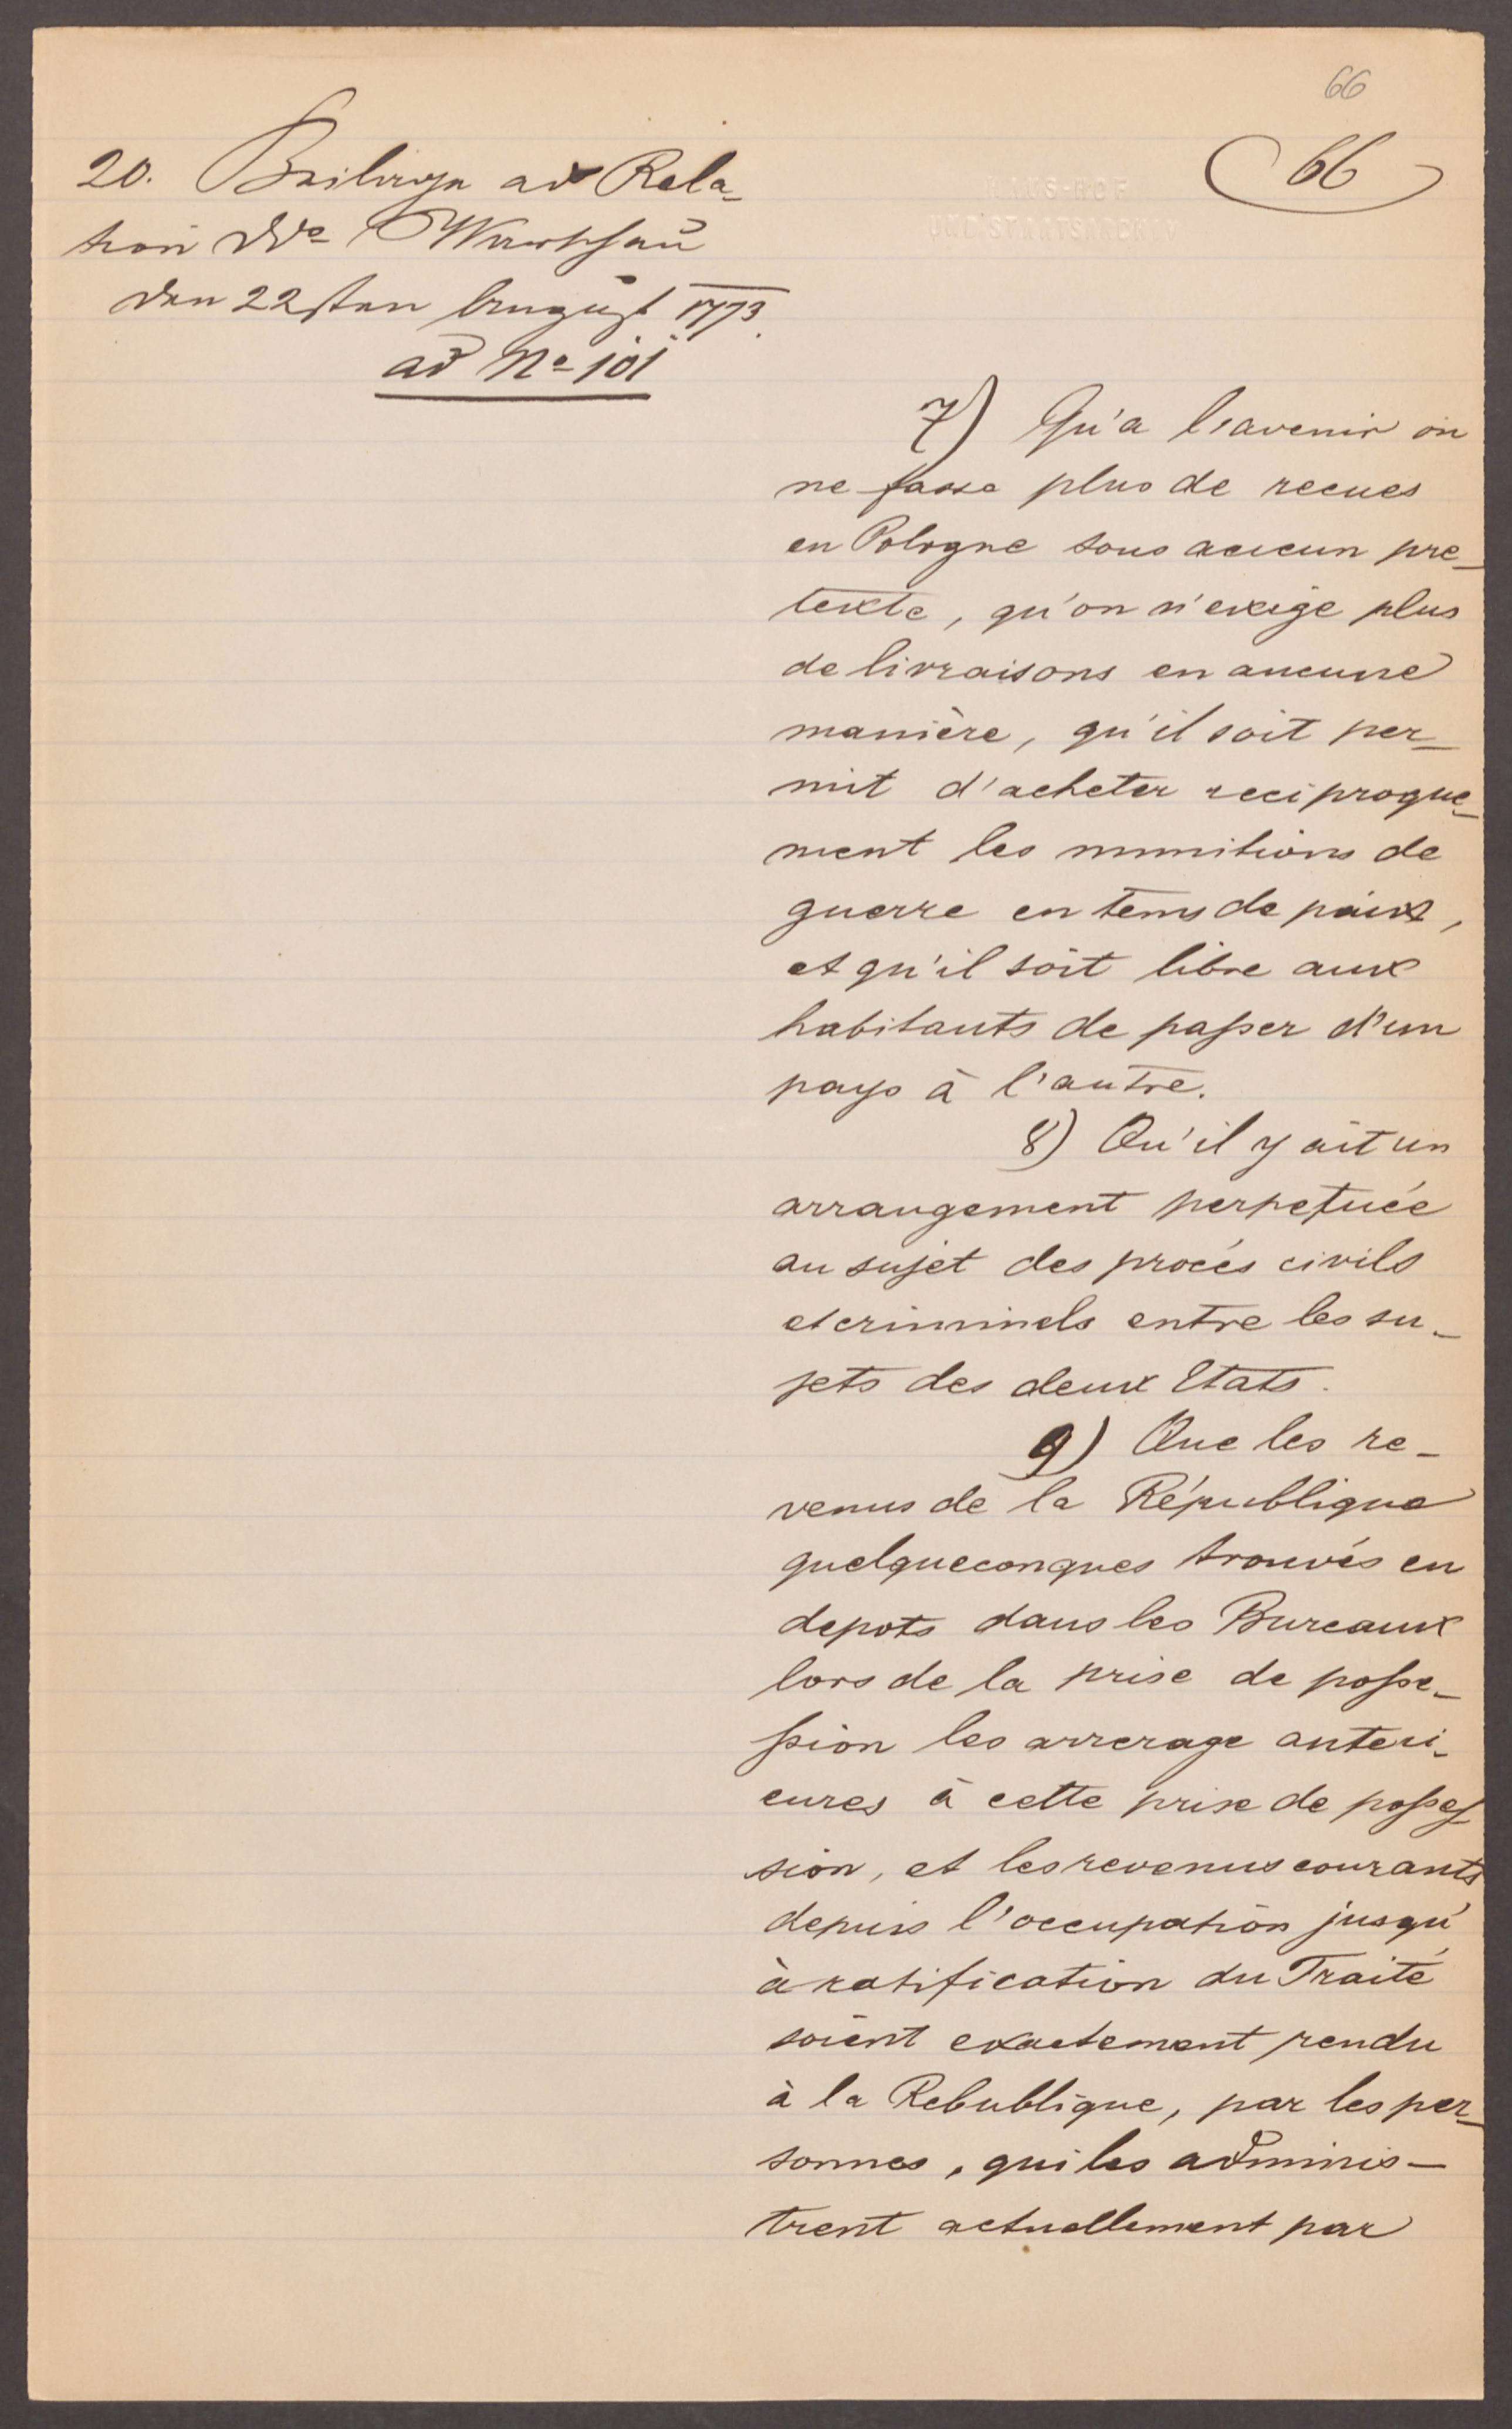 66
66
HAUS-HOF
UND STAATSARCHIV
20. Beilage ad Rela-
tion dd° Warschau
den 22sten August 1773.
ad N° 101
7) Qu'a l'avenir on
ne fasse plus de recues
en Pologne sous aucun pre-
texte, qu'on n'exige plus
de livraisons en aucune
manière, qu'il soit per-
mit d'acheter reciproque-
ment les munitions de
guerre en tems de paix,
et qu'il soit libre aux
habitants de passer d'un
pays à l'autre.
8) Qu'il y ait un
arrangement perpetuée
au sujet des procés civils
et criminels entre les su-
jets des deux Etats.
9) Que les re-
venus de la République
quelqueconques trouvés en
depots dans les Bureaux
lors de la prise de posse-
ssion les arrerage anteri-
eures à cette prise de posses-
sion, et les revenus courants
depuis l'occupation jusqu'
à ratification du Traité
soient exactement rendu
à la Rebublique, par les per-
sonnes, qui les adminis-
trent actuellement par